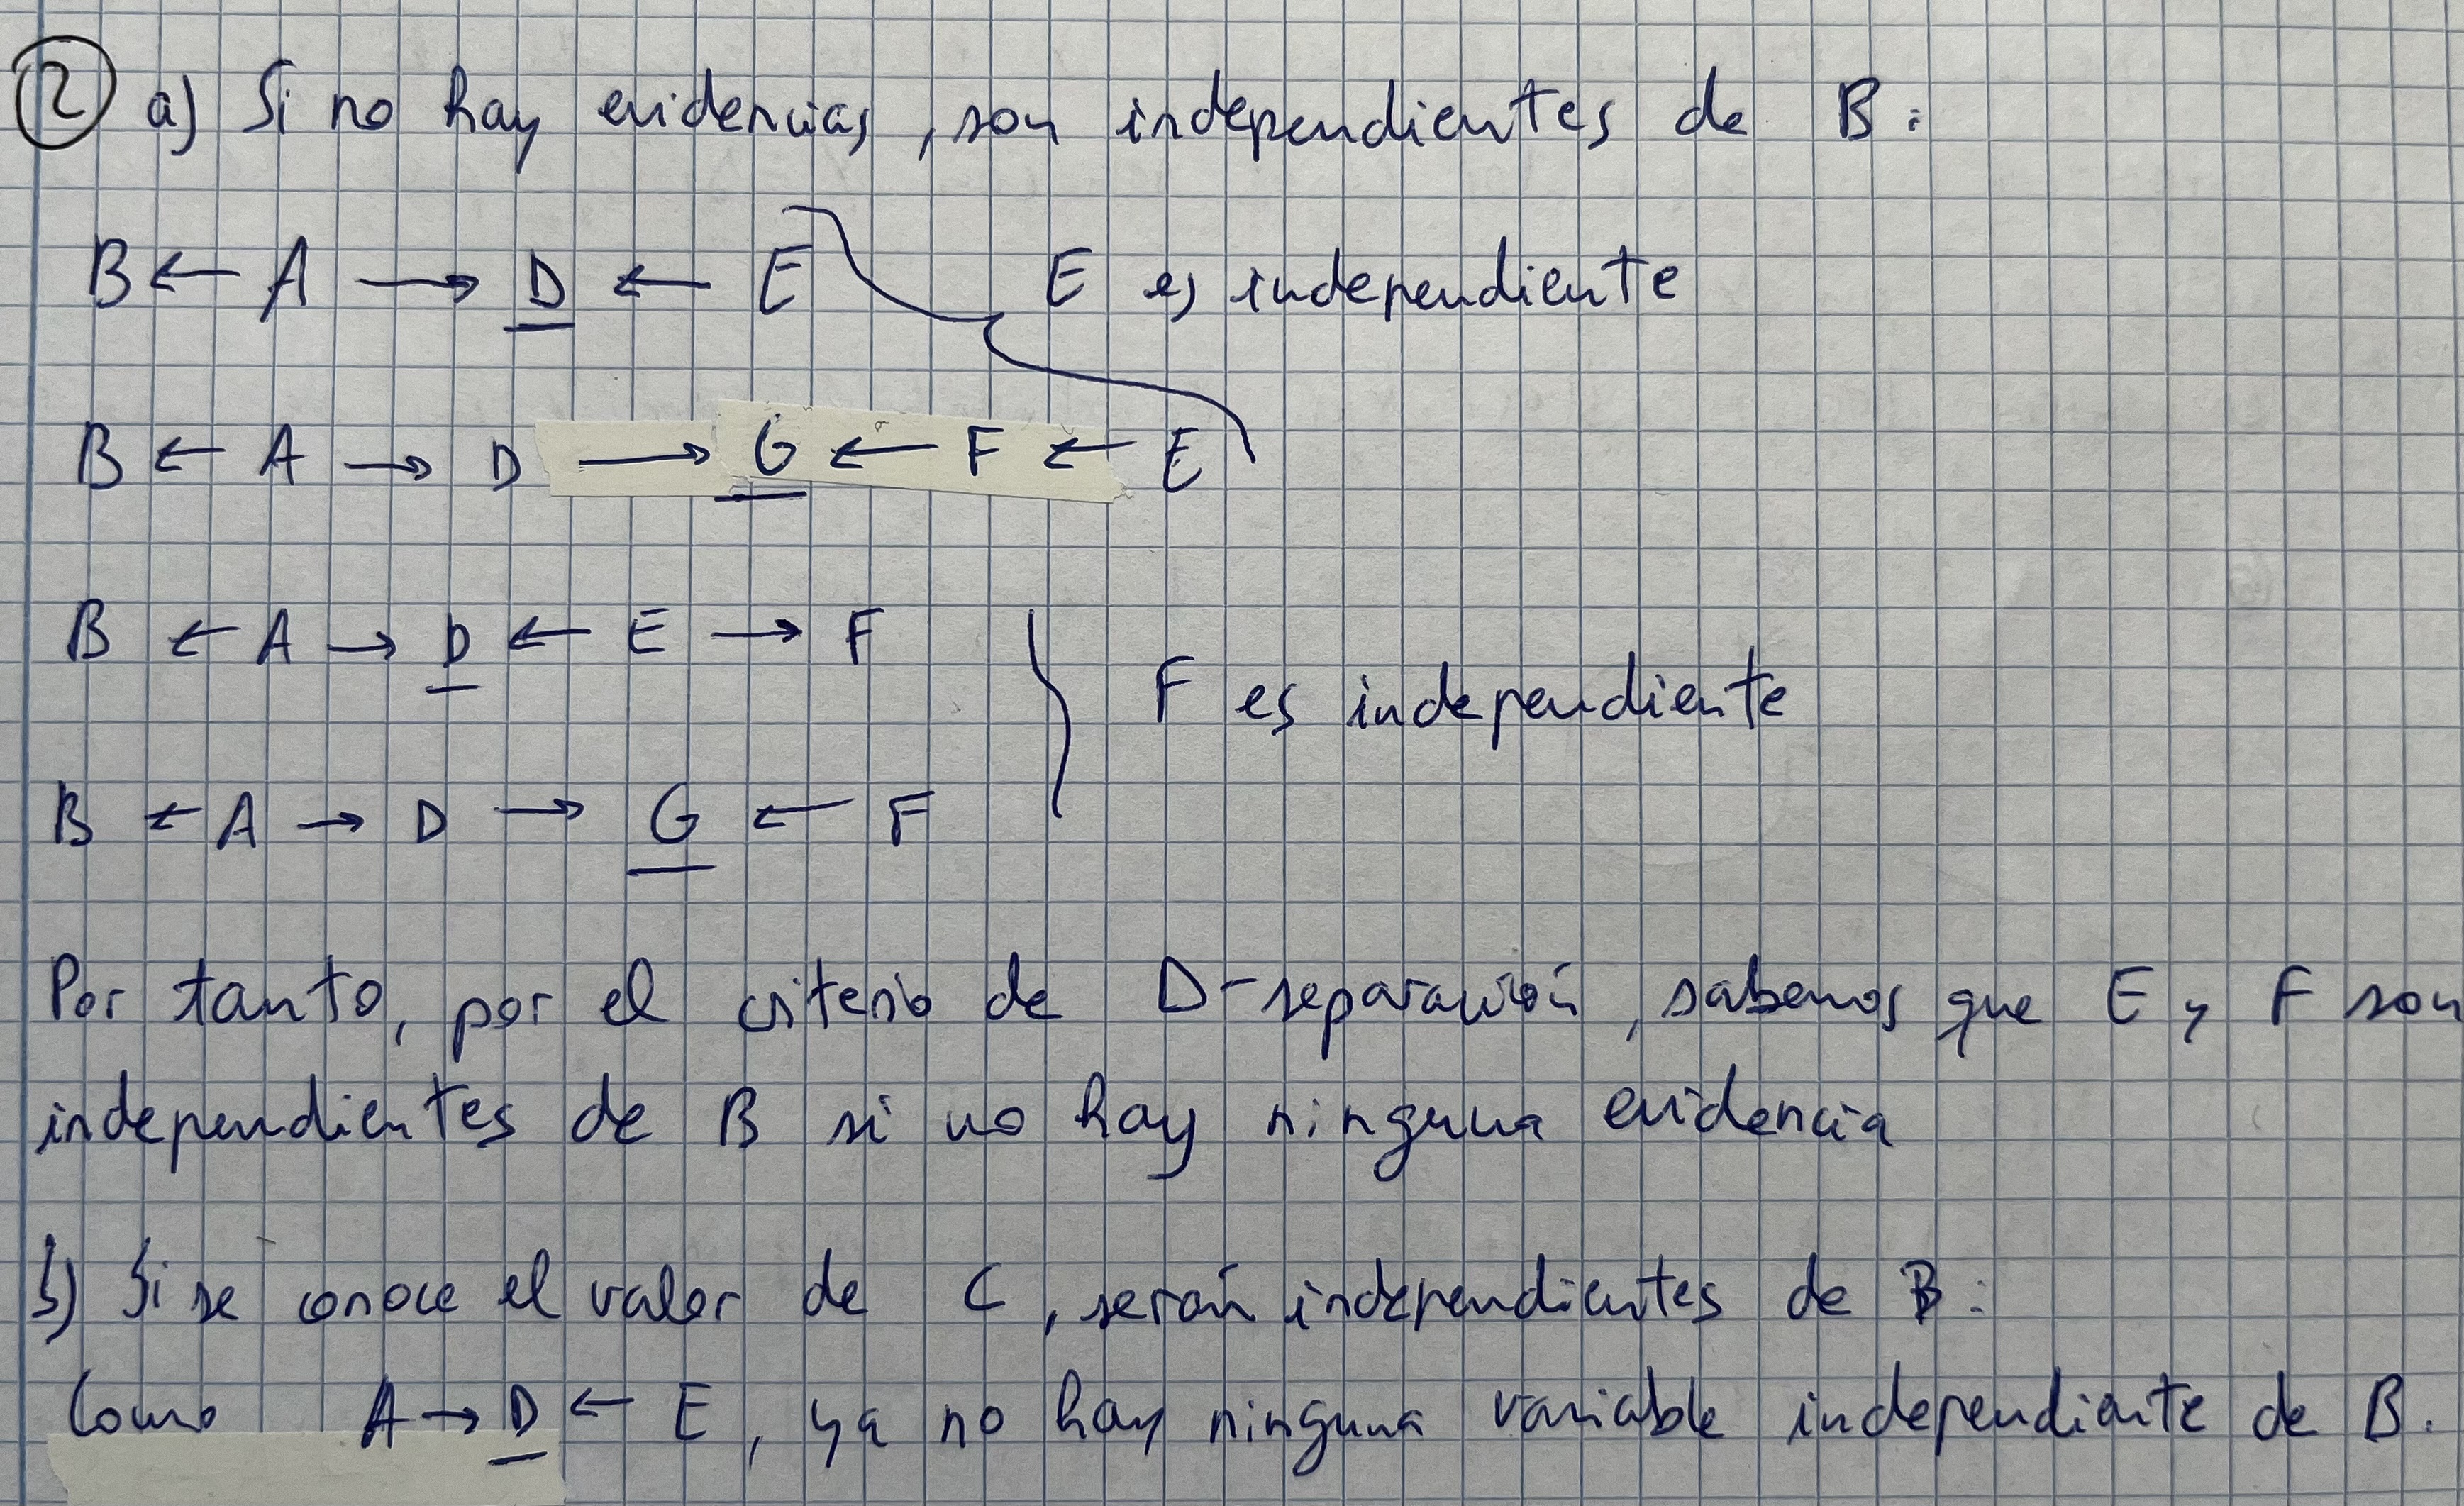 ② a) Si no hay evidencias, son independientes de B:
B ← A → D ← E    E es independiente
B ← A → D → G ← F ← E
B ← A → D ← E → F
F es independiente
B ← A → D → G ← F
Por tanto, por el criterio de D-separación, sabemos que E y F son
independientes de B si no hay ninguna evidencia
b) Si se conoce el valor de C, serán independientes de B:
Como A → D ← E, ya no hay ninguna variable independiente de B.